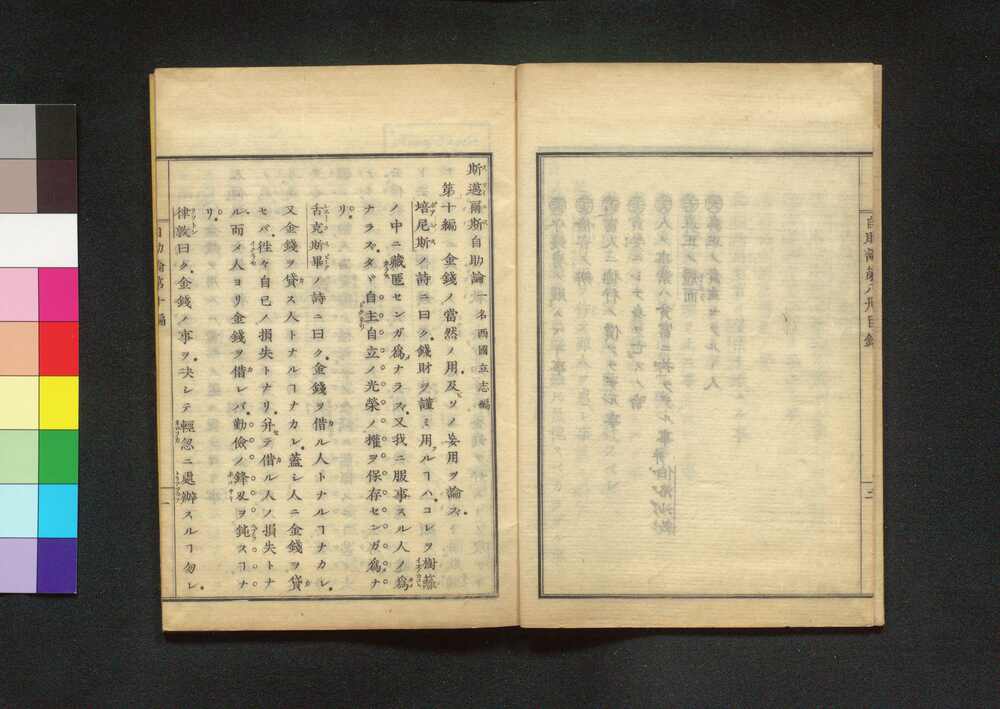 自助論第八冊目録
三
斯邁爾斯自助論 一名西國立志編
第十編 金錢ノ當然ノ用及ビソノ妄用ヲ論ズ
培尼斯ノ詩ニ曰ク錢財ヲ謹ミ用ルヿハコレヲ樹蘇
ノ中ニ藏匿センガ爲ナラズ又我ニ服事スル人ノ爲
ナラズタヾ自主自立ノ光榮ノ權ヲ保存センガ爲ナ
リ
舌克斯畢ノ詩ニ曰ク金錢ヲ借ル人トナルヿナカレ
又金錢ヲ貸ス人トナルヿナカレ蓋シ人ニ金錢ヲ貸
セバ徃々自己ノ損失トナリ幷テ借ル人ノ損失トナ
ル而メ人ヨリ金錢ヲ借レバ勤儉ノ鋒刄ヲ鈍スヿナ
リ
律敦曰ク金錢ノ事ヲ决シテ輕忽ニ處辦スルヿ勿レ
自助論第十編
一